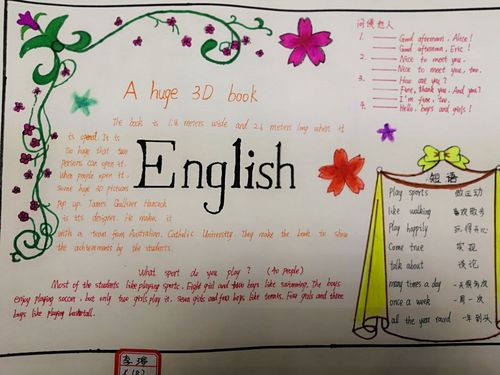 A huge 3D book
The book is 1.8 meters wide and 2.6 meters long when it
is opened. It is
so huge that two
persons can open it.
When people open it.
Some huge 3D pictures
Pop up. James Gulliver Hancock
is its designer. He makes it
with a team from Australian. Catholic University. They make the book to show
the achievements by the students.
English
What sport do you play ? (40 people)
Most of the students like playing sports. Eight girl and four boys like swimming. The boys
enjoy playing soccer, but only two girls play it. Seven girls and four boys like tennis. Five girls and three
boys like playing basketball.
问候他人
1. Good afternoon, Alice!
Good afternoon, Eric!
2. Nice to meet you.
Nice to meet you, too.
3. How are you?
Fine, thank you. And you?
I'm fine, too.
4. Hello, boys and girls!
短语
Play sports 做运动
like walking 喜欢散步
Play happily 玩得开心
Come true 实现
talk about 谈论
many times a day 一天很多次
once a week 一周一次
all the year round 一年到头
李